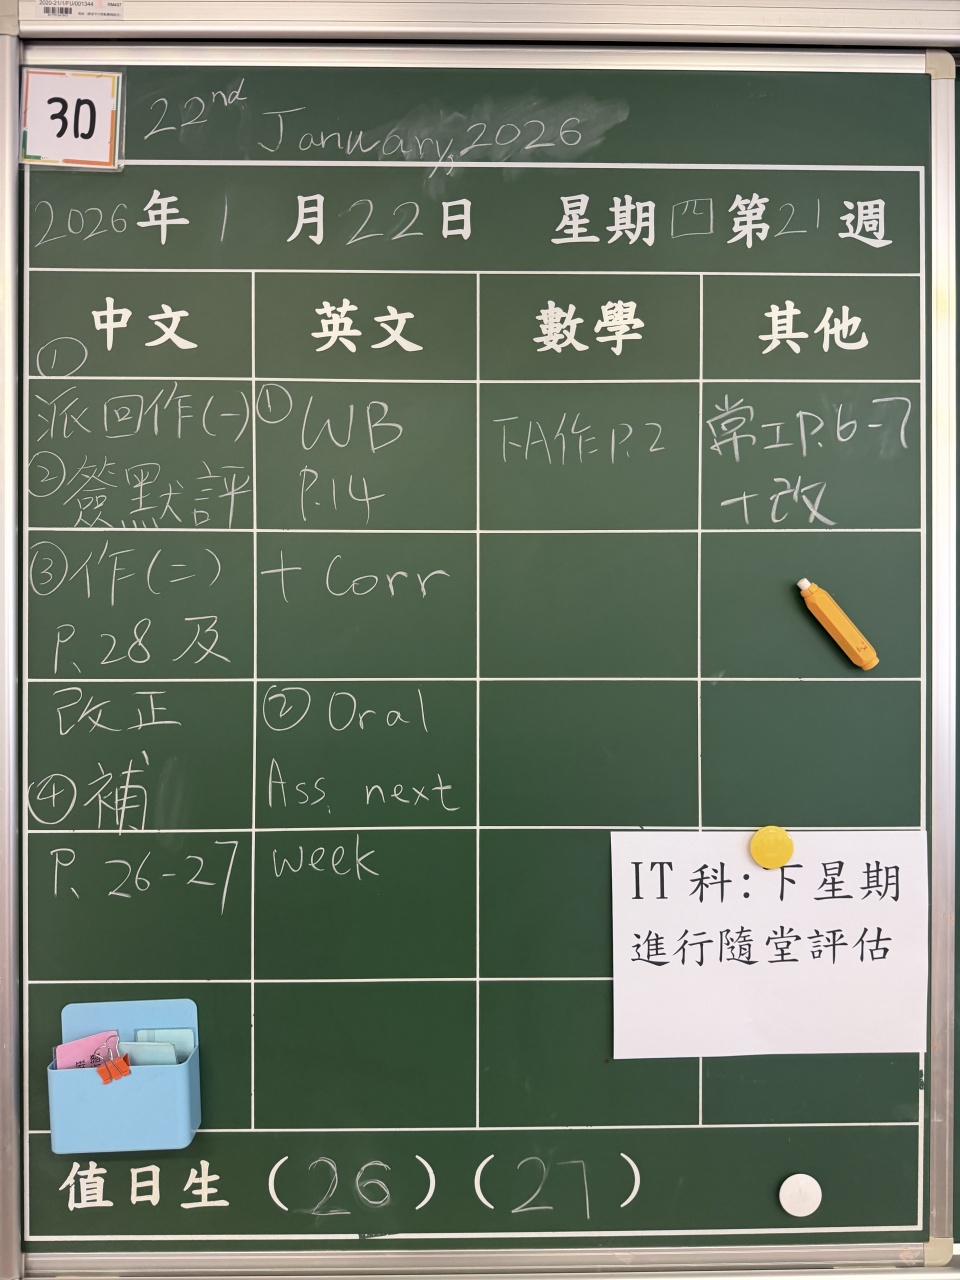 2020-21/1/FU/001344
RM407
3D
22nd January, 2026
2026年1月22日 星期四第21週
中文 英文 數學 其他
①
派回作(一)
②簽默評
③作(二)
P.28及
改正
④補
P. 26-27
① WB
P.14
+ Corr
② Oral
Ass. next
week
下A作P.2
常工P.6-7
+改
IT科:下星期
進行隨堂評估
值日生(26)(27)